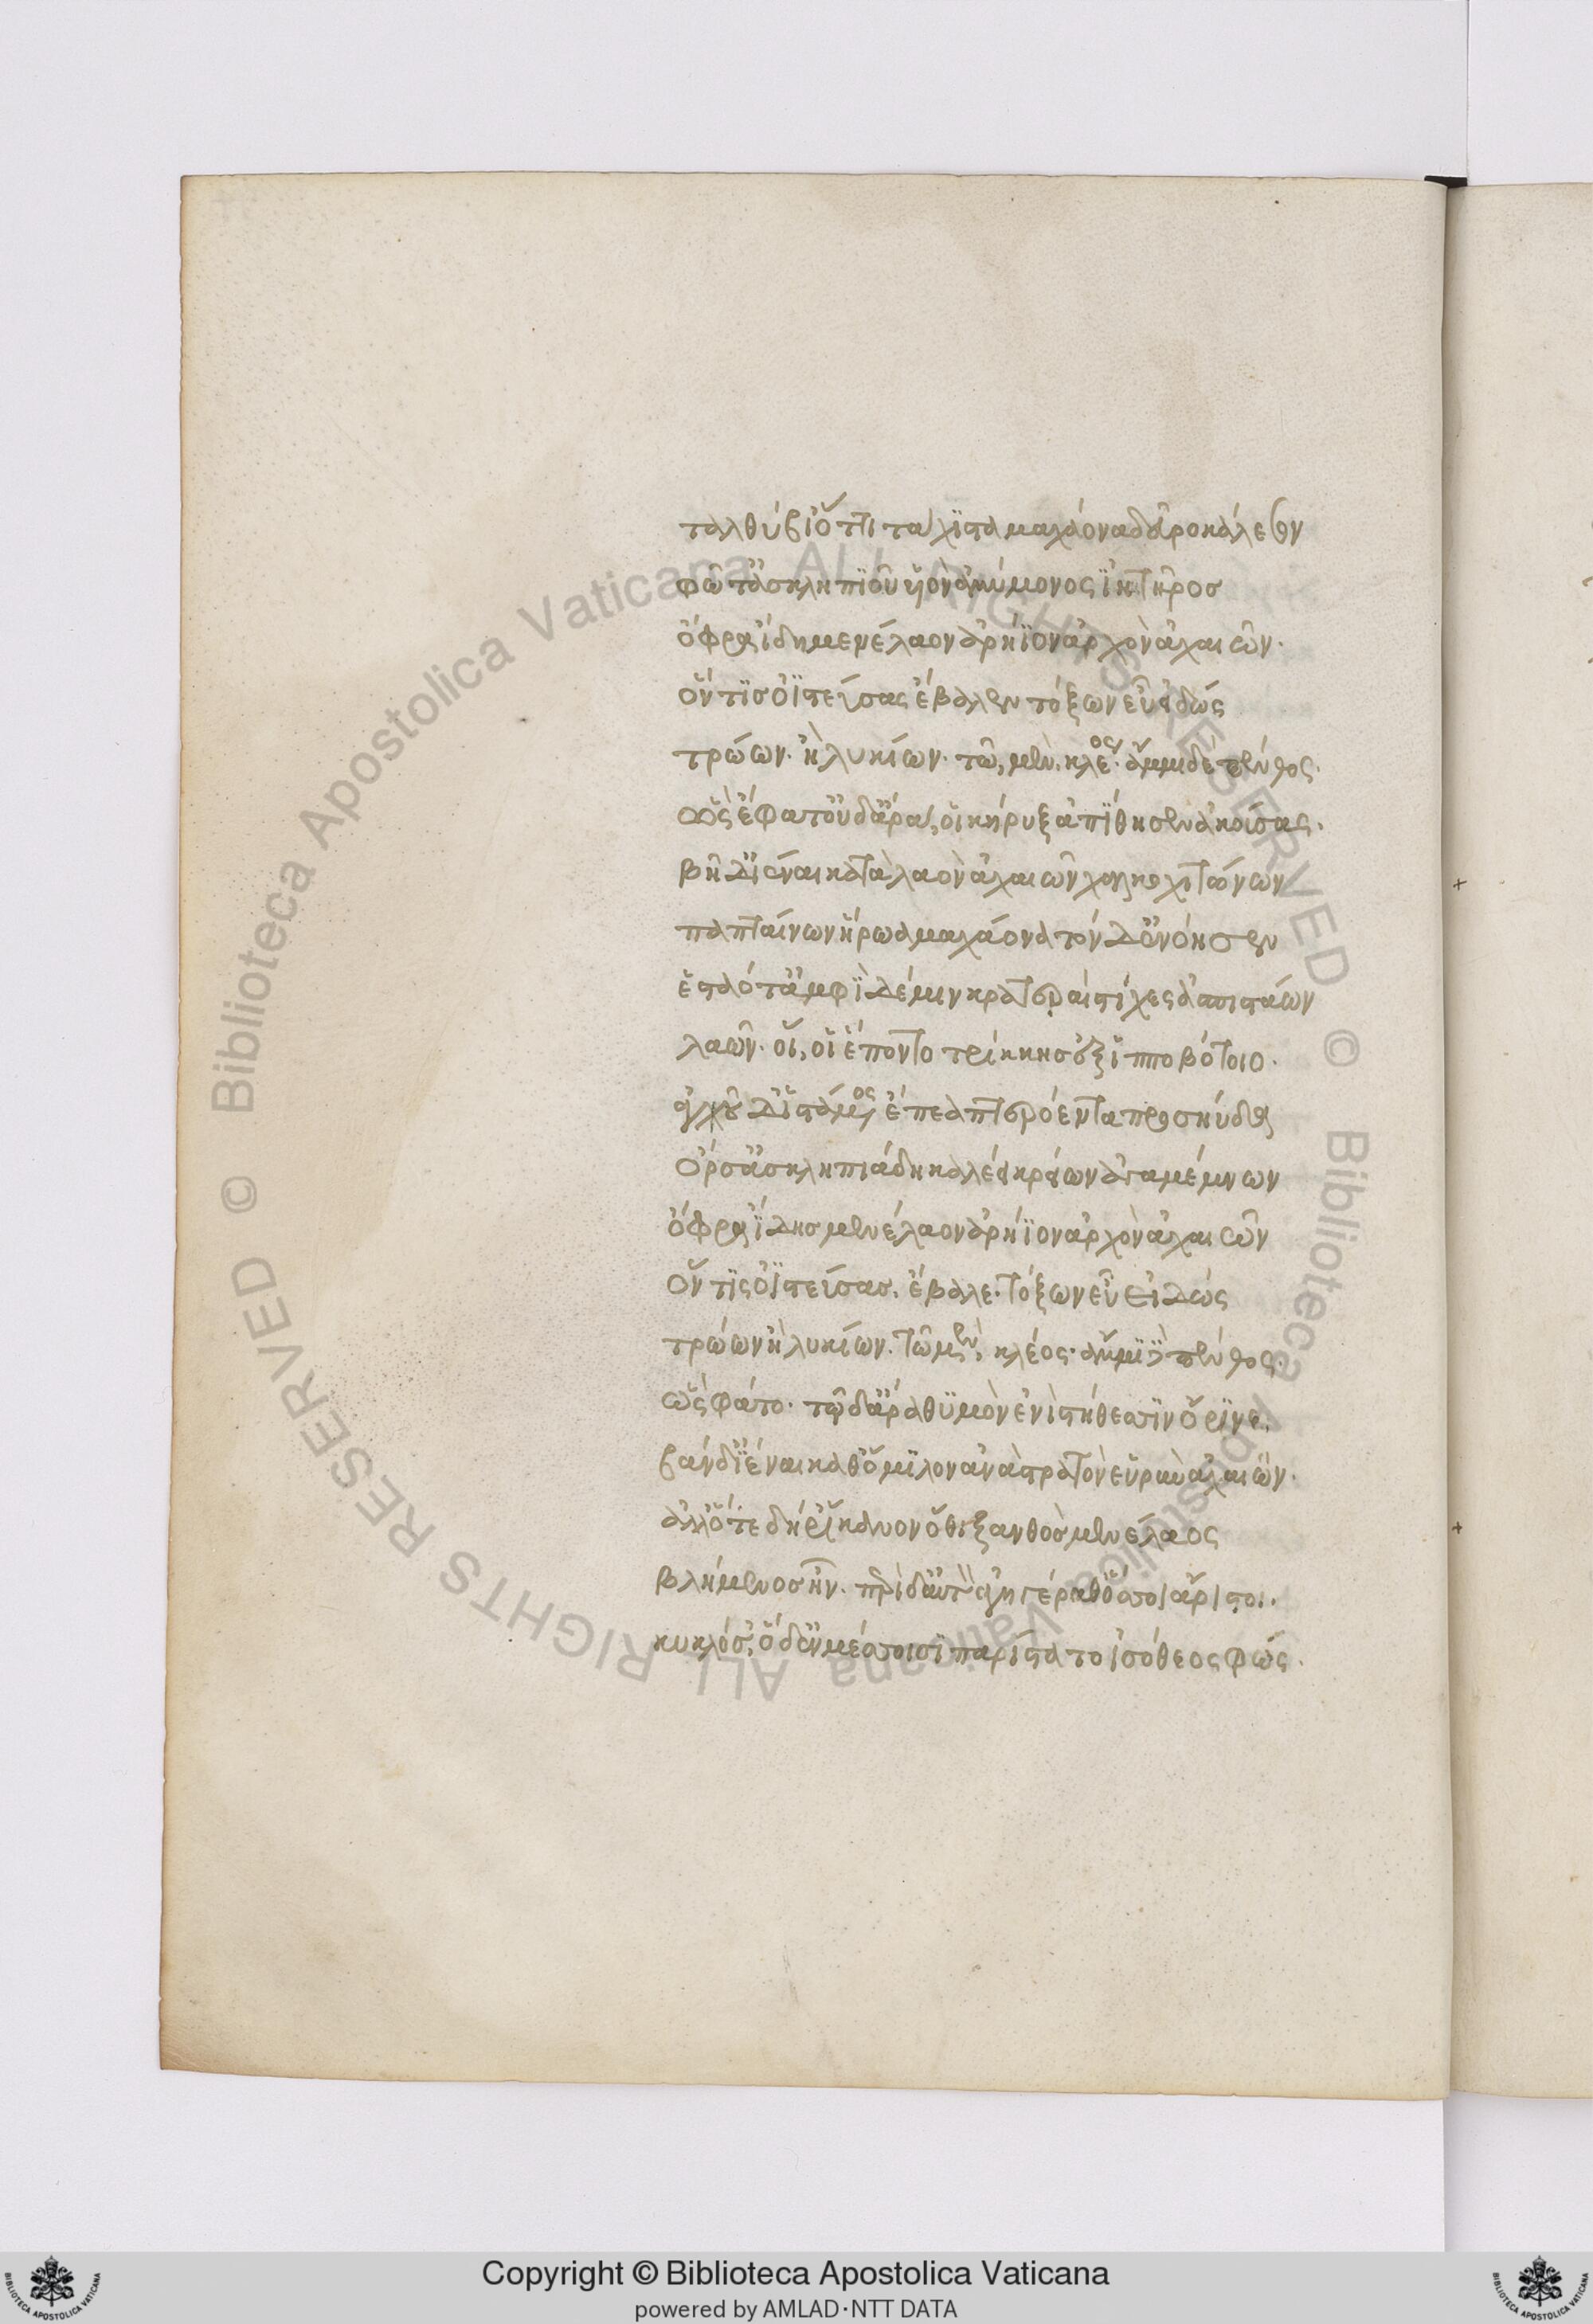 ταλθύβι' ὅττι τάχιστα μαχάονα δεῦρο κάλεσσον
φῶτ' ἀσκληπιοῦ υἱὸν ἀμύμονος ἰητῆρος
ὄφρα ἴδῃ μενέλαον ἀρήϊον ἀρχὸν ἀχαιῶν.
ὅν τις ὀϊστεύσας ἔβαλεν τόξων εὖ εἰδώς
τρώων. ἢ λυκίων. τῶ, μὲν. κλέος. ἄμμι δὲ πένθος.
ὣς ἔφατ' οὐδ' ἄρα, οἱ κήρυξ ἀπίθησεν ἀκούσας.
βῆ δ' ἰέναι κατὰ λαὸν ἀχαιῶν χαλκοχιτώνων
παπταίνων ἥρωα μαχάονα τὸν δ' ἐνόησεν
ἑσταότ' ἀμφὶ δέ μιν κρατεραὶ στίχες ἀσπιστάων
λαῶν. οἵ, οἱ ἕποντο τρίκκης ἐξ ἱπποβότοιο.
ἀγχοῦ δ' ἱστάμενος ἔπεα πτερόεντα προσηύδα
ὄρσ' ἀσκληπιάδη καλέει κρείων ἀγαμέμνων
ὄφρα ἴδῃς μενέλαον ἀρήϊον ἀρχὸν ἀχαιῶν
ὅν τις ὀϊστεύσας. ἔβαλε. τόξων εὖ εἰδώς
τρώων ἢ λυκίων. τῶ μὲν, κλέος. ἄμμι δὲ πένθος.
ὣς φάτο. τῷ δ' ἄρα θυμὸν ἐνὶ στήθεσσιν ὄρινε.
βὰν δ' ἰέναι καθ' ὅμιλον ἀνὰ στρατὸν εὐρὺν ἀχαιῶν.
ἀλλ' ὅτε δή ῥ' ἵκανον ὅθι ξανθὸς μενέλαος
βλήμενος ἦν. περὶ δ' αὐτὸν ἀγηγέραθ' ὅσσοι ἄριστοι.
κυκλόσ', ὁ δ' ἐν μέσσοισι παρίστατο ἰσόθεος φώς.
Copyright © Biblioteca Apostolica Vaticana
powered by AMLAD·NTT DATA